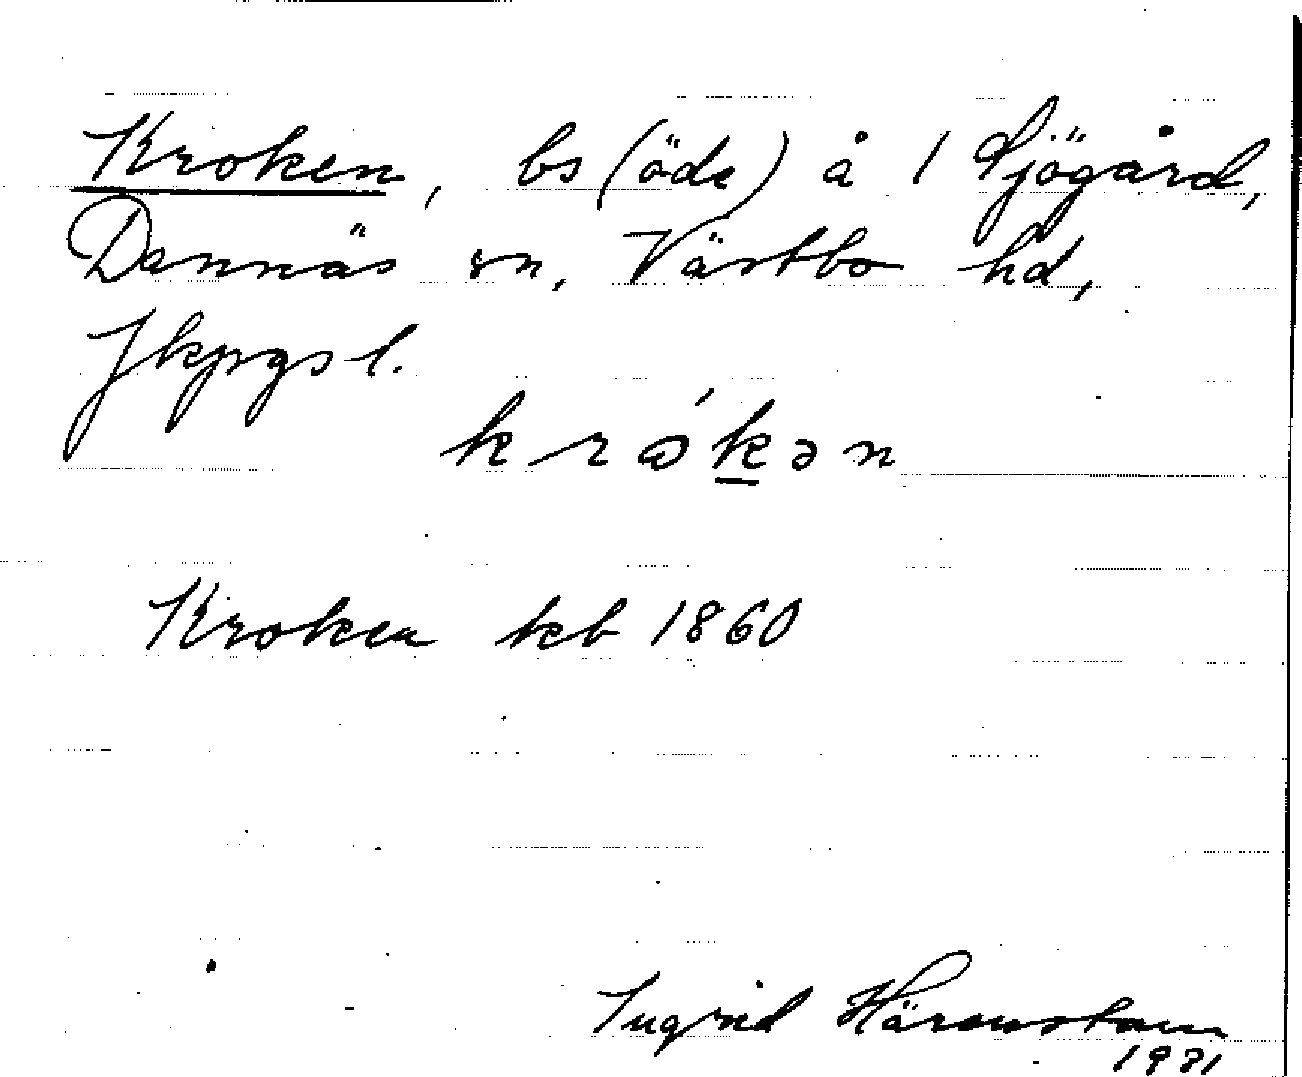 Kroken, bs (öde) å 1 Sjögård,
Dannäs sn, Västbo hd,
Jkpgs l.
kró̱kən
Kroken kb 1860
Ingrid Härenstam
1981